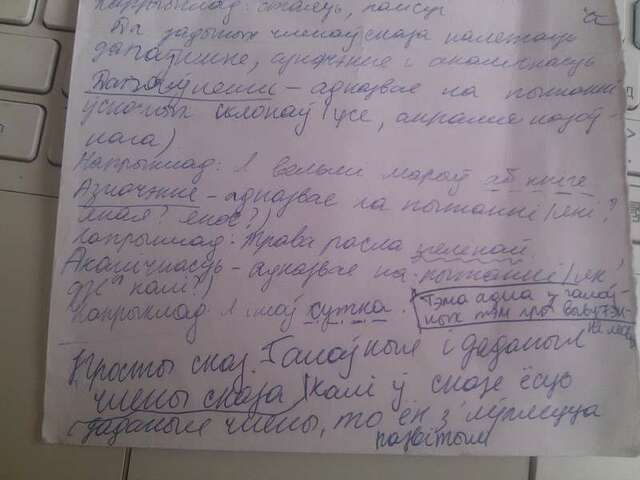 Напрыклад: стаяць,
Да даданых членаў сказа належаць
дапаўненне, азначэнне і акалічнасць
Дапаўненне – адказвае на пытанні
ускосных склонаў (усе, акрамя назоў-
нага)
Напрыклад: Я вельмі марыў аб кнізе
Азначэнне – адказвае на пытанні (які?
якая? якое?)
Напрыклад: Трава расла зеленай.
Акалічнасць – адказвае на пытанні (як,
дзе, калі?)
Напрыклад: Я ішоў хутка.
Тэма адна у галоў-
ных тэм пры вывучэн-
Просты сказ. Галоўныя і даданыя
члены сказа (калі ў сказе ёсць
даданыя члены, то ён з'яўляецца
развітым